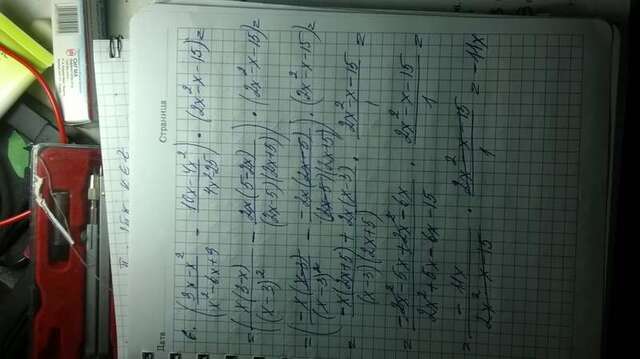 Дата Страница
6. (3x-x²/x²-6x+9 - 10x-4x²/4x²-25) · (2x²-x-15)=
=(x(3-x)/(x-3)² - 2x(5-2x)/(2x-5)(2x+5)) · (2x²-x-15)=
=(-x(x-3)/(x-3)² - -2x(2x-5)/(2x-5)(2x+5)) · (2x²-x-15)=
= -x(2x+5)+2x(x-3)/(x-3)(2x+5) · 2x²-x-15/1 =
= -2x²-5x+2x²-6x/2x²+5x-6x-15 · 2x²-x-15/1 =
= -11x/2x²-x-15 · 2x²-x-15/1 = -11x